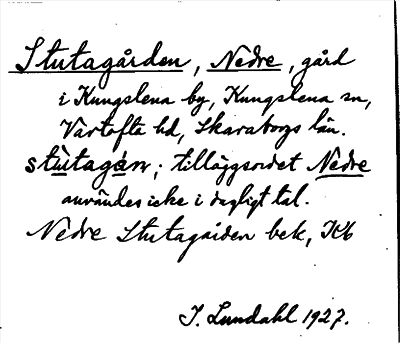 Stutagården, Nedre, gård
i Kungslena by, Kungslena sn,
Vartofta hd, Skaraborgs län.
stùtagárn; tilläggsordet Nedre
användes icke i dagligt tal.
Nedre Stutagården bek,
I. Lundahl 1927.